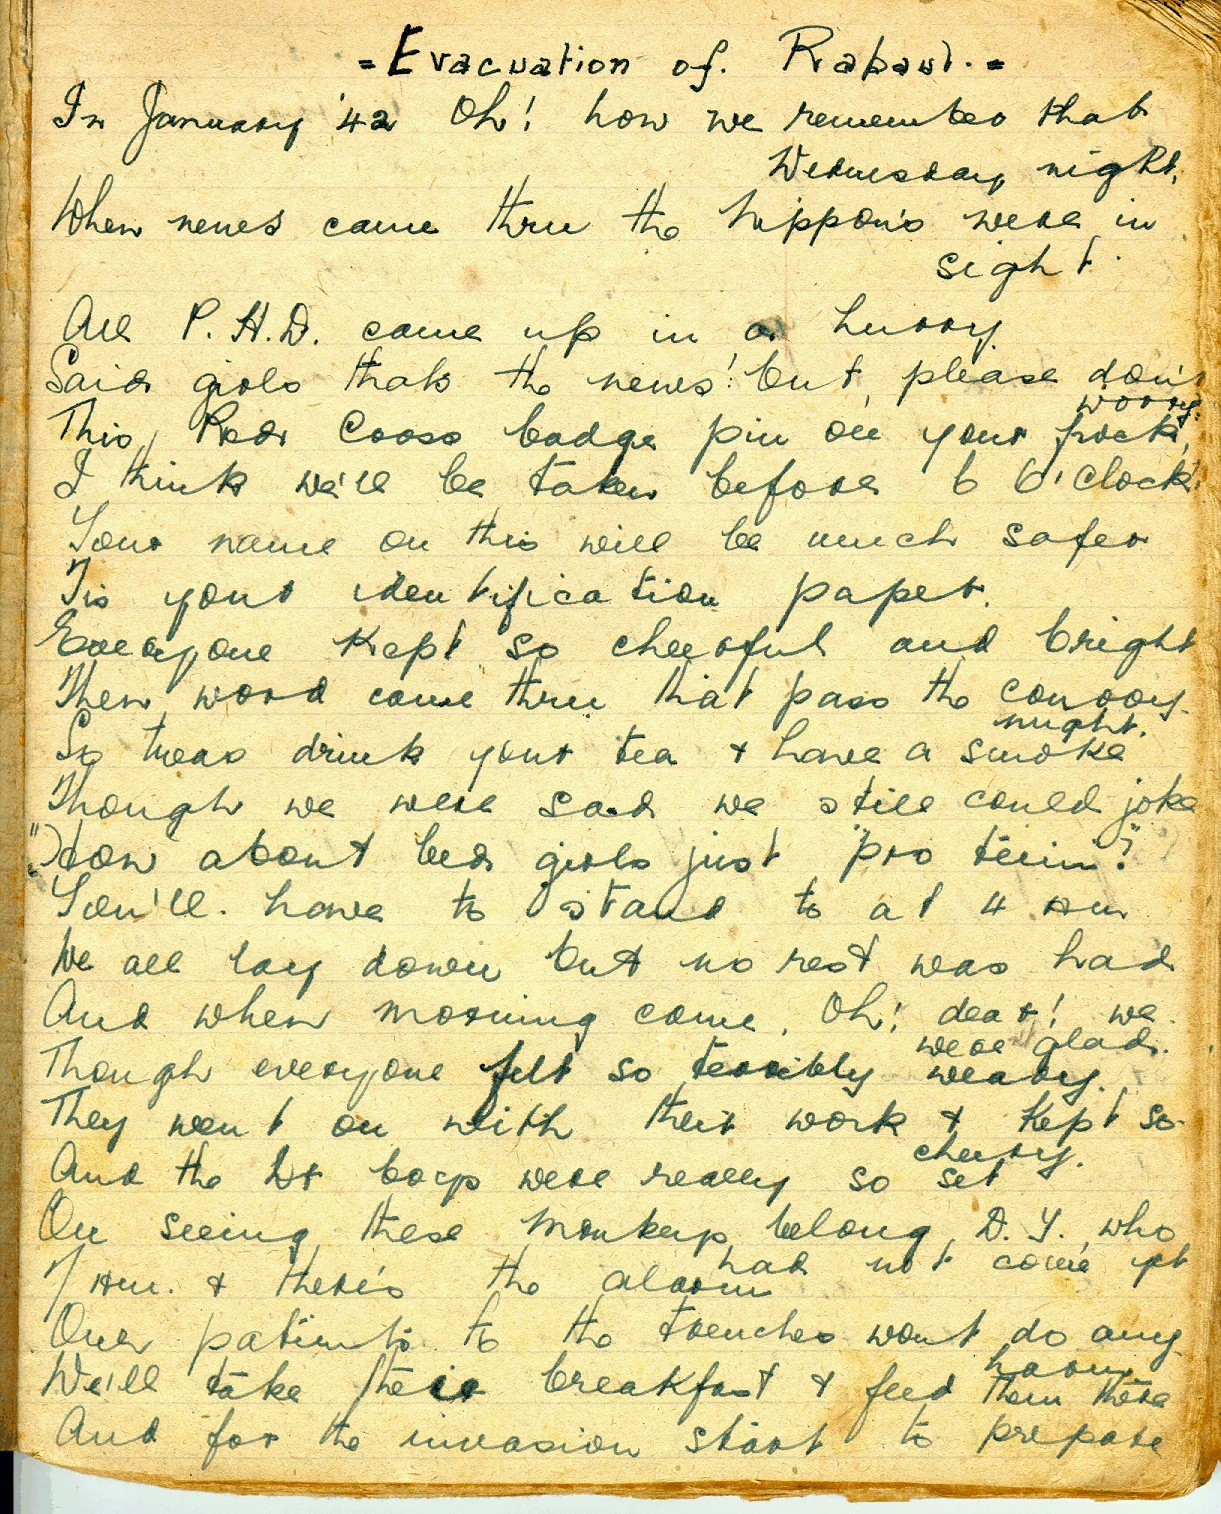 = Evacuation of. Rabaul. =
In January '42 Oh! how we remember that
Wednesday night,
When news came thru the Nippon's were in
sight.
Our P.H.D. came up in a hurry
Said girls thats the news! but please don't
worry.
This, Red Cross badge pin on your frock,
I think we'll be taken before 6 O'Clock.
Your name on this will be much safer
Tis your identification paper.
Everyone Kept so cheerful and bright
Then word came thru that pass the convoy
might.
So twas drink your tea + have a smoke
Though we were sad we still could joke
"How about bed girls just "pro teim"?
You'll. have to stand to at 4 am
We all lay down but no rest was had
And when morning came, Oh! dear! we
were glad.
Though everyone felt so terribly weary.
They went on with their work + Kept so
cheery.
And the boys were really so set
On seeing these Monkeys belong D.Y. who
had not come yet
7 am. + there's the alarm
Our patients to the trenches wont do any
harm
We'll take their breakfast + feed them there
And for the invasion start to prepare